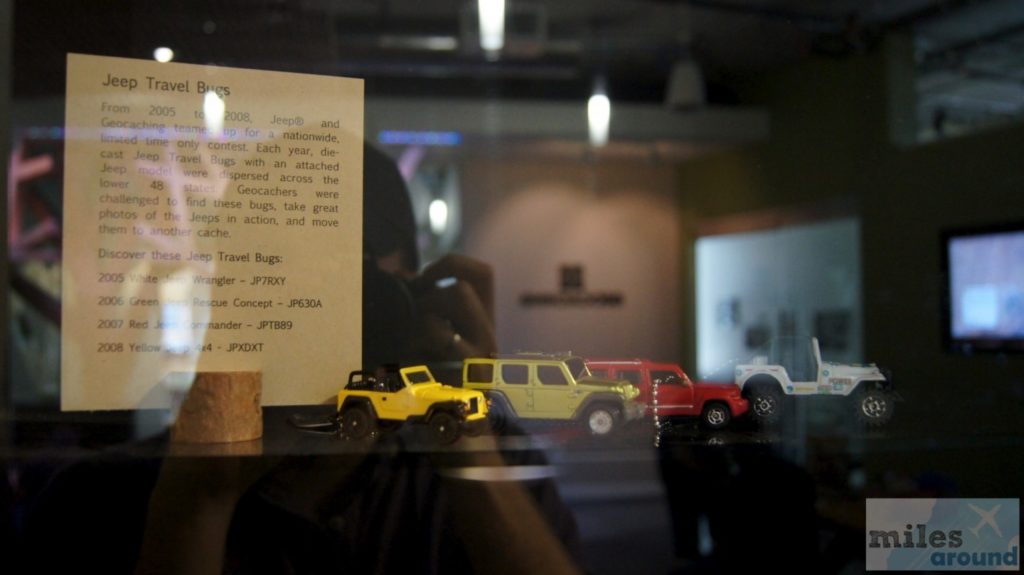 Jeep Travel Bugs
From 2005 to 2008, Jeep® and
Geocaching teamed up for a nationwide,
limited time only contest. Each year, die-
cast Jeep Travel Bugs with an attached
Jeep model were dispersed across the
lower 48 states. Geocachers were
challenged to find these bugs, take great
photos of the Jeeps in action, and move
them to another cache.
Discover these Jeep Travel Bugs:
2005 White Jeep Wrangler – JP7RXY
2006 Green Jeep Rescue Concept – JP630A
2007 Red Jeep Commander – JPTB89
2008 Yellow Jeep 4x4 - JPXDXT
miles
around